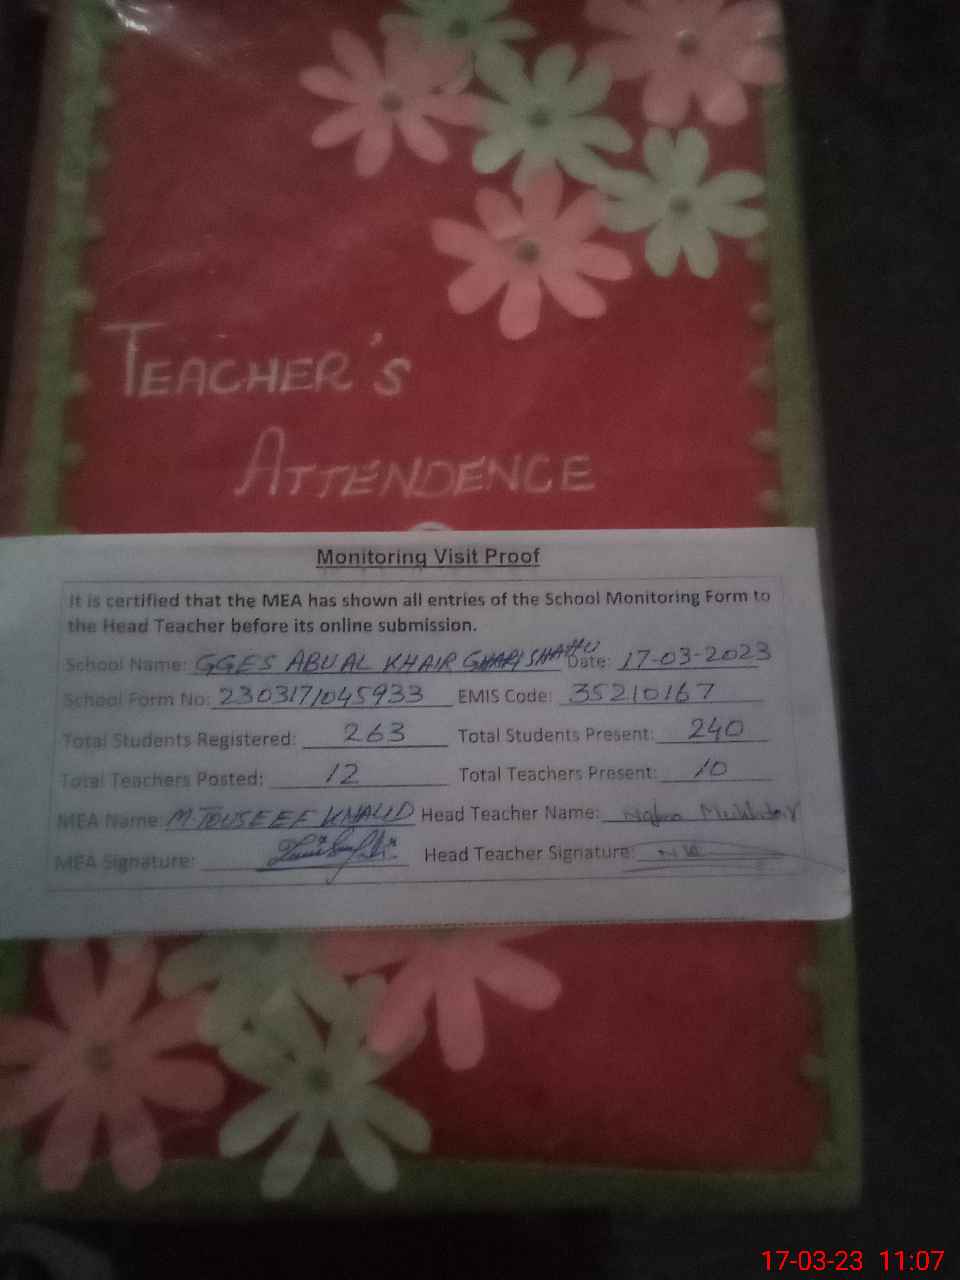 TEACHER'S
ATTENDENCE
Monitoring Visit Proof
It is certified that the MEA has shown all entries of the School Monitoring Form to
the Head Teacher before its online submission.
School Name: GGES ABU AL KHAIR GHARI SHAHU Date: 17-03-2023
School Form No: 230317/045933 EMIS Code: 35210167
Total Students Registered: 263 Total Students Present: 240
Total Teachers Posted: 12 Total Teachers Present: 10
MEA Name: M TOUSEEF KHALID Head Teacher Name:
MEA Signature: Head Teacher Signature:
17-03-23 11:07